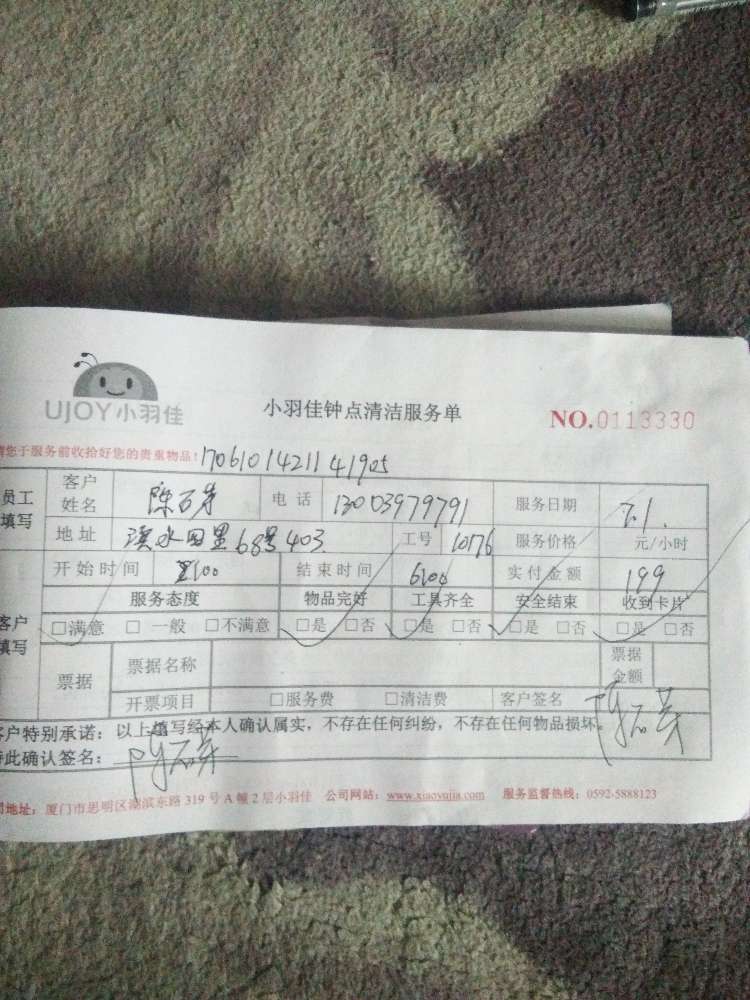 UJOY小羽佳
小羽佳钟点清洁服务单
NO.0113330
请您于服务前收拾好您的贵重物品! 1706101421141905
员工填写
客户姓名 陈 电话 13003979791 服务日期 7.1.
地址 溪水 里68号403 工号 10176 服务价格 元/小时
开始时间 结束时间 实付金额 199
客户填写
服务态度 物品完好 工具齐全 安全结束 收到卡片
□满意 □一般 □不满意 □是 □否 □是 □否 □是 □否 □是 □否
票据 票据名称 票据金额
开票项目 □服务费 □清洁费 客户签名
客户特别承诺:以上填写经本人确认属实,不存在任何纠纷,不存在任何物品损坏。
特此确认签名:
司地址:厦门市思明区湖滨东路319号A幢2层小羽佳 公司网站:www.xiaoyujia.com 服务监督热线:0592-5888123